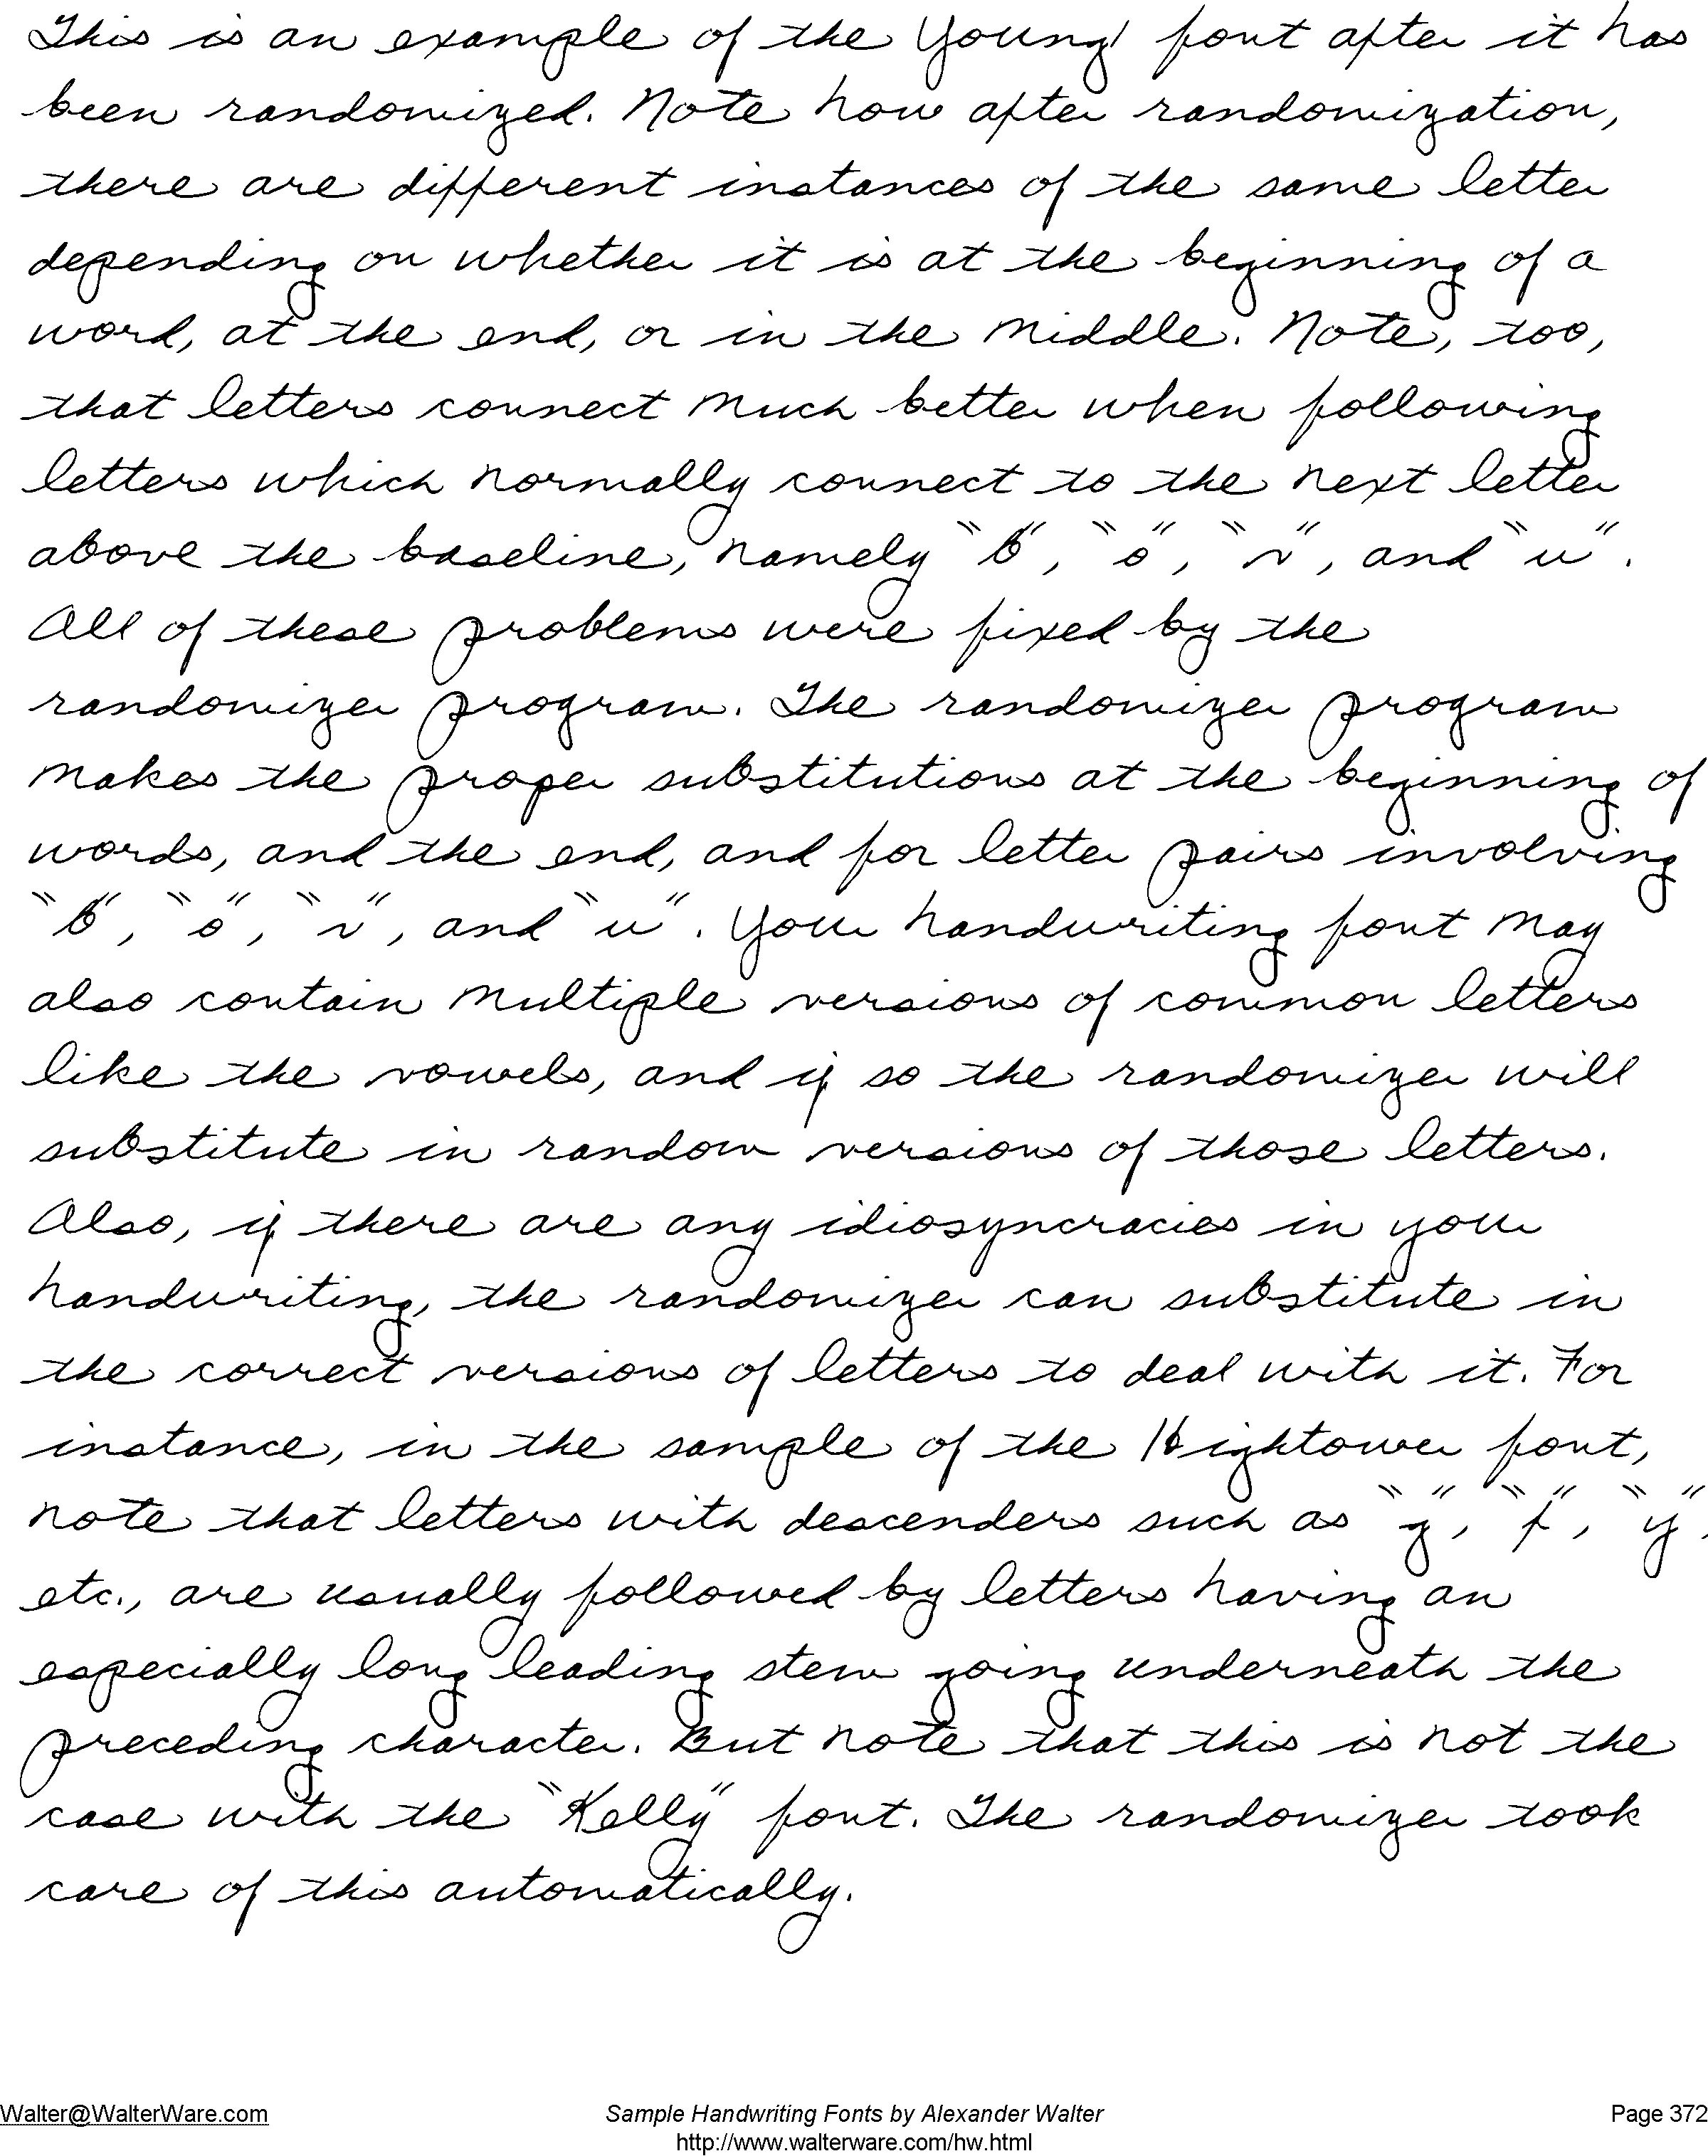 This is an example of the Young1 font after it has
been randomized. Note how after randomization,
there are different instances of the same letter
depending on whether it is at the beginning of a
word, at the end, or in the middle. Note, too,
that letters connect much better when following
letters which normally connect to the next letter
above the baseline, namely "b", "o", "v", and "w".
All of these problems were fixed by the
randomizer program. The randomizer program
makes the proper substitutions at the beginning of
words, and the end, and for letter pairs involving
"b", "o", "v", and "w". Your handwriting font may
also contain multiple versions of common letters
like the vowels, and if so the randomizer will
substitute in random versions of those letters.
Also, if there are any idiosyncracies in your
handwriting, the randomizer can substitute in
the correct versions of letters to deal with it. For
instance, in the sample of the Hightower font,
note that letters with descenders such as "g", "f", "y",
etc., are usually followed by letters having an
especially long leading stem going underneath the
preceding character. But note that this is not the
case with the "Kelly" font. The randomizer took
care of this automatically.
Walter@WalterWare.com Sample Handwriting Fonts by Alexander Walter Page 372
http://www.walterware.com/hw.html